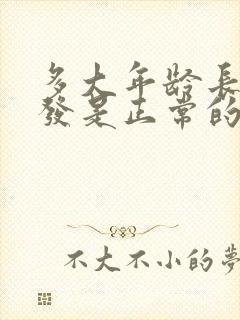 多大年龄長
發是正常的
不大不小的夢